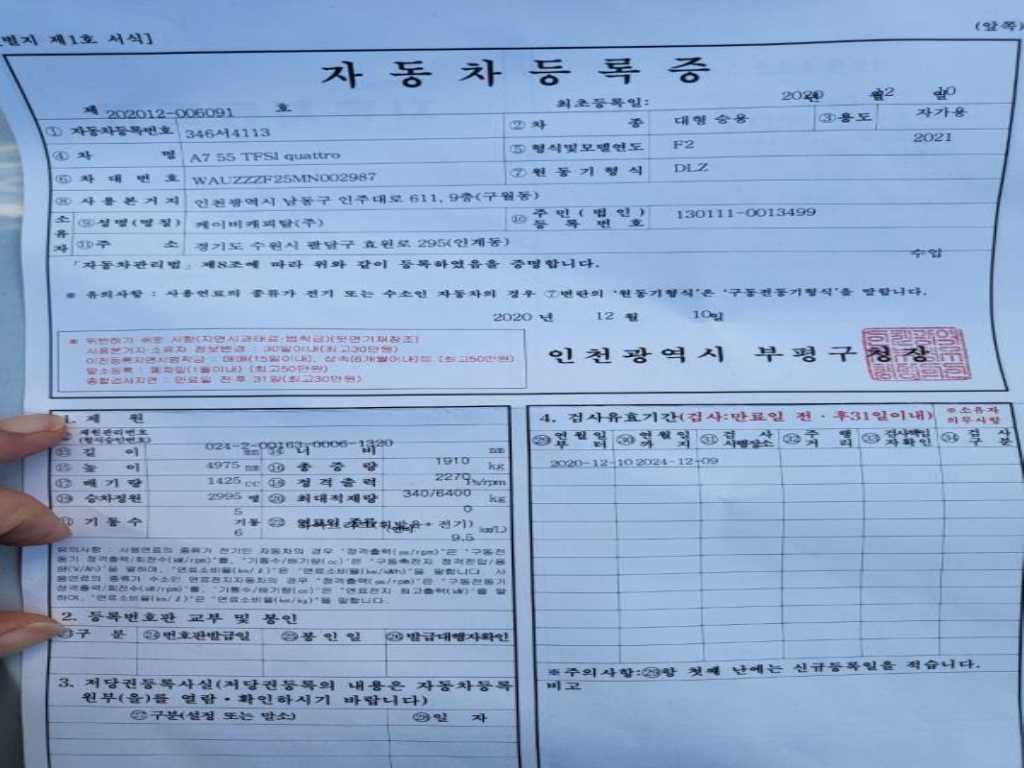 별지 제1호 서식]
(앞쪽)
자동차등록증
제 202012-006091 호 최초등록일: 2020 년 12 월 10 일
① 자동차등록번호 346서4113 ② 차 종 대형 승용 ③용도 자가용
④ 차 명 A7 55 TFSI quattro ⑤ 형식및모델연도 F2 2021
⑥ 차 대 번 호 WAUZZZF25MN002987 ⑦ 원 동 기 형 식 DLZ
⑧ 사 용 본 거 지 인천광역시 남동구 인주대로 611, 9층(구월동)
소유자 ⑨성명(명칭) 케이비캐피탈(주) ⑩ 주 민 ( 법 인 ) 등 록 번 호 130111-0013499
⑪주 소 경기도 수원시 팔달구 효원로 295(인계동)
수입
「자동차관리법」 제8조에 따라 위와 같이 등록하였음을 증명합니다.
※ 유의사항 : 사용연료의 종류가 전기 또는 수소인 자동차의 경우 ⑦번란의 '원동기형식'은 '구동전동기형식'을 말합니다.
2020 년 12 월 10일
※ 위반하기 쉬운 사항(지연시과태료·범칙금)(뒷면기재참조)
사용본거지·소유자 정보변경 : 30일이내(최고30만원)
이전등록지연시범칙금 : 매매(15일이내), 상속(6개월이내)등 (최고50만원)
말소등록 : 폐차일(1월이내) (최고50만원)
종합검사지연 : 만료일 전후 31일(최고30만원)
인천광역시 부평구청장
1. 제 원
⑫ 제원관리번호 (형식승인번호) 024-2-00163-0006-1320
⑬ 길 이 mm ⑭ 너 비 mm
⑮ 높 이 4975 mm ⑯ 총 중 량 1910 kg
⑰ 배 기 량 1425 cc ⑱ 정 격 출 력 2270 Ps/rpm
⑲ 승차정원 2995 명 ⑳ 최대적재량 340/6400 kg
5 0
㉑ 기 통 수 기통 ㉒ 연료의 종류 + 전기)
6 9.5 km/L)
유의사항 : 사용연료의 종류가 전기인 자동차의 경우 "정격출력(ps/rpm)"은 "구동전
동기 정격출력/회전수(kW/rpm)"를, "기통수/배기량(cc)"는 "구동축전지 정격전압/용
량(V/Ah)"을 말하며, "연료소비율(km/ℓ)"은 "연료소비율(km/kWh)"을 말합니다. 사
용연료의 종류가 수소인 연료전지자동차의 경우 "정격출력(ps/rpm)"은 "구동전동기
정격출력/회전수(kW/rpm)"를, "기통수/배기량(cc)"은 "연료전지 최고출력(kW)"을 말
하며, "연료소비율(km/ℓ)"은 "연료소비율(km/kg)"을 말합니다.
2. 등록번호판 교부 및 봉인
㉓구 분 ㉔번호판발급일 ㉕봉 인 일 ㉖발급대행자확인
3. 저당권등록사실(저당권등록의 내용은 자동차등록
원부(을)를 열람·확인하시기 바랍니다)
㉗구분(설정 또는 말소) ㉘일 자
4. 검사유효기간(검사:만료일 전·후31일이내) ※소유자 의무사항
㉙연 월 일 부 터 ㉚연 월 일 까 지 ㉛검 사 시행장소 ㉜주 행 거 리 ㉝검사책임 자확인 ㉞검 사 구 분
2020-12-10 2024-12-09
※주의사항:㉙항 첫째 난에는 신규등록일을 적습니다.
비고